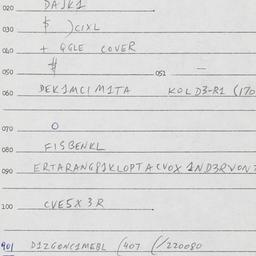 020 DAJK1
030 $ )CIXL
040 + QGLE COVER
050 $ 051 —
060 DEK1MCIM1TA KOLD3-R1 (170
070 O
080 FISBENKL
090 ERTARANGP1KLOPTACVOX 1ND3RVON
100 CVE5X3R
901 D1ZGONC1MEBL (407 (/220080